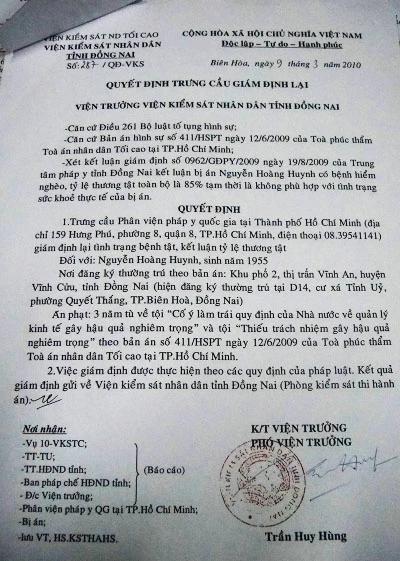 VIỆN KIỂM SÁT ND TỐI CAO
CỘNG HÒA XÃ HỘI CHỦ NGHĨA VIỆT NAM
VIỆN KIỂM SÁT NHÂN DÂN
Độc lập – Tự do – Hạnh phúc
TỈNH ĐỒNG NAI
Số: 287/QĐ-VKS
Biên Hòa, ngày 9 tháng 3 năm 2010
QUYẾT ĐỊNH TRƯNG CẦU GIÁM ĐỊNH LẠI
VIỆN TRƯỞNG VIỆN KIỂM SÁT NHÂN DÂN TỈNH ĐỒNG NAI
-Căn cứ Điều 261 Bộ luật tố tụng hình sự;
-Căn cứ Bản án hình sự số 411/HSPT ngày 12/6/2009 của Toà phúc thẩm
Toà án nhân dân Tối cao tại TP.Hồ Chí Minh;
-Xét kết luận giám định số 0962/GĐPY/2009 ngày 19/8/2009 của Trung
tâm pháp y tỉnh Đồng Nai kết luận bị án Nguyễn Hoàng Huynh có bệnh hiểm
nghèo, tỷ lệ thương tật toàn bộ là 85% tạm thời là không phù hợp với tình trạng
sức khoẻ thực tế của bị án.
QUYẾT ĐỊNH
1.Trưng cầu Phân viện pháp y quốc gia tại Thành phố Hồ Chí Minh (địa
chỉ 159 Hưng Phú, phường 8, quận 8, TP.Hồ Chí Minh, điện thoại 08.39541141)
giám định lại tình trạng bệnh tật, kết luận tỷ lệ thương tật
Đối với: Nguyễn Hoàng Huynh, sinh năm 1955
Nơi đăng ký thường trú theo bản án: Khu phố 2, thị trấn Vĩnh An, huyện
Vĩnh Cửu, tỉnh Đồng Nai (hiện đăng ký thường trú tại D14, cư xá Tỉnh Uỷ,
phường Quyết Thắng, TP.Biên Hoà, Đồng Nai)
Án phạt: 3 năm tù về tội “Cố ý làm trái quy định của Nhà nước về quản lý
kinh tế gây hậu quả nghiêm trọng” và tội “Thiếu trách nhiệm gây hậu quả
nghiêm trọng” theo bản án số 411/HSPT ngày 12/6/2009 của Toà phúc thẩm
Toà án nhân dân Tối cao tại TP.Hồ Chí Minh.
2.Việc giám định được thực hiện theo các quy định của pháp luật. Kết quả
giám định gửi về Viện kiểm sát nhân dân tỉnh Đồng Nai (Phòng kiểm sát thi hành
án).
Nơi nhận:
K/T VIỆN TRƯỞNG
-Vụ 10-VKSTC;
PHÓ VIỆN TRƯỞNG
-TT-TU;
-TT.HĐND tỉnh;
(Báo cáo)
-Ban pháp chế HĐND tỉnh;
- Đ/c Viện trưởng;
-Phân viện pháp y QG tại TP.Hồ Chí Minh;
-Bị án;
-lưu VT, HS.KSTHAHS.
Trần Huy Hùng